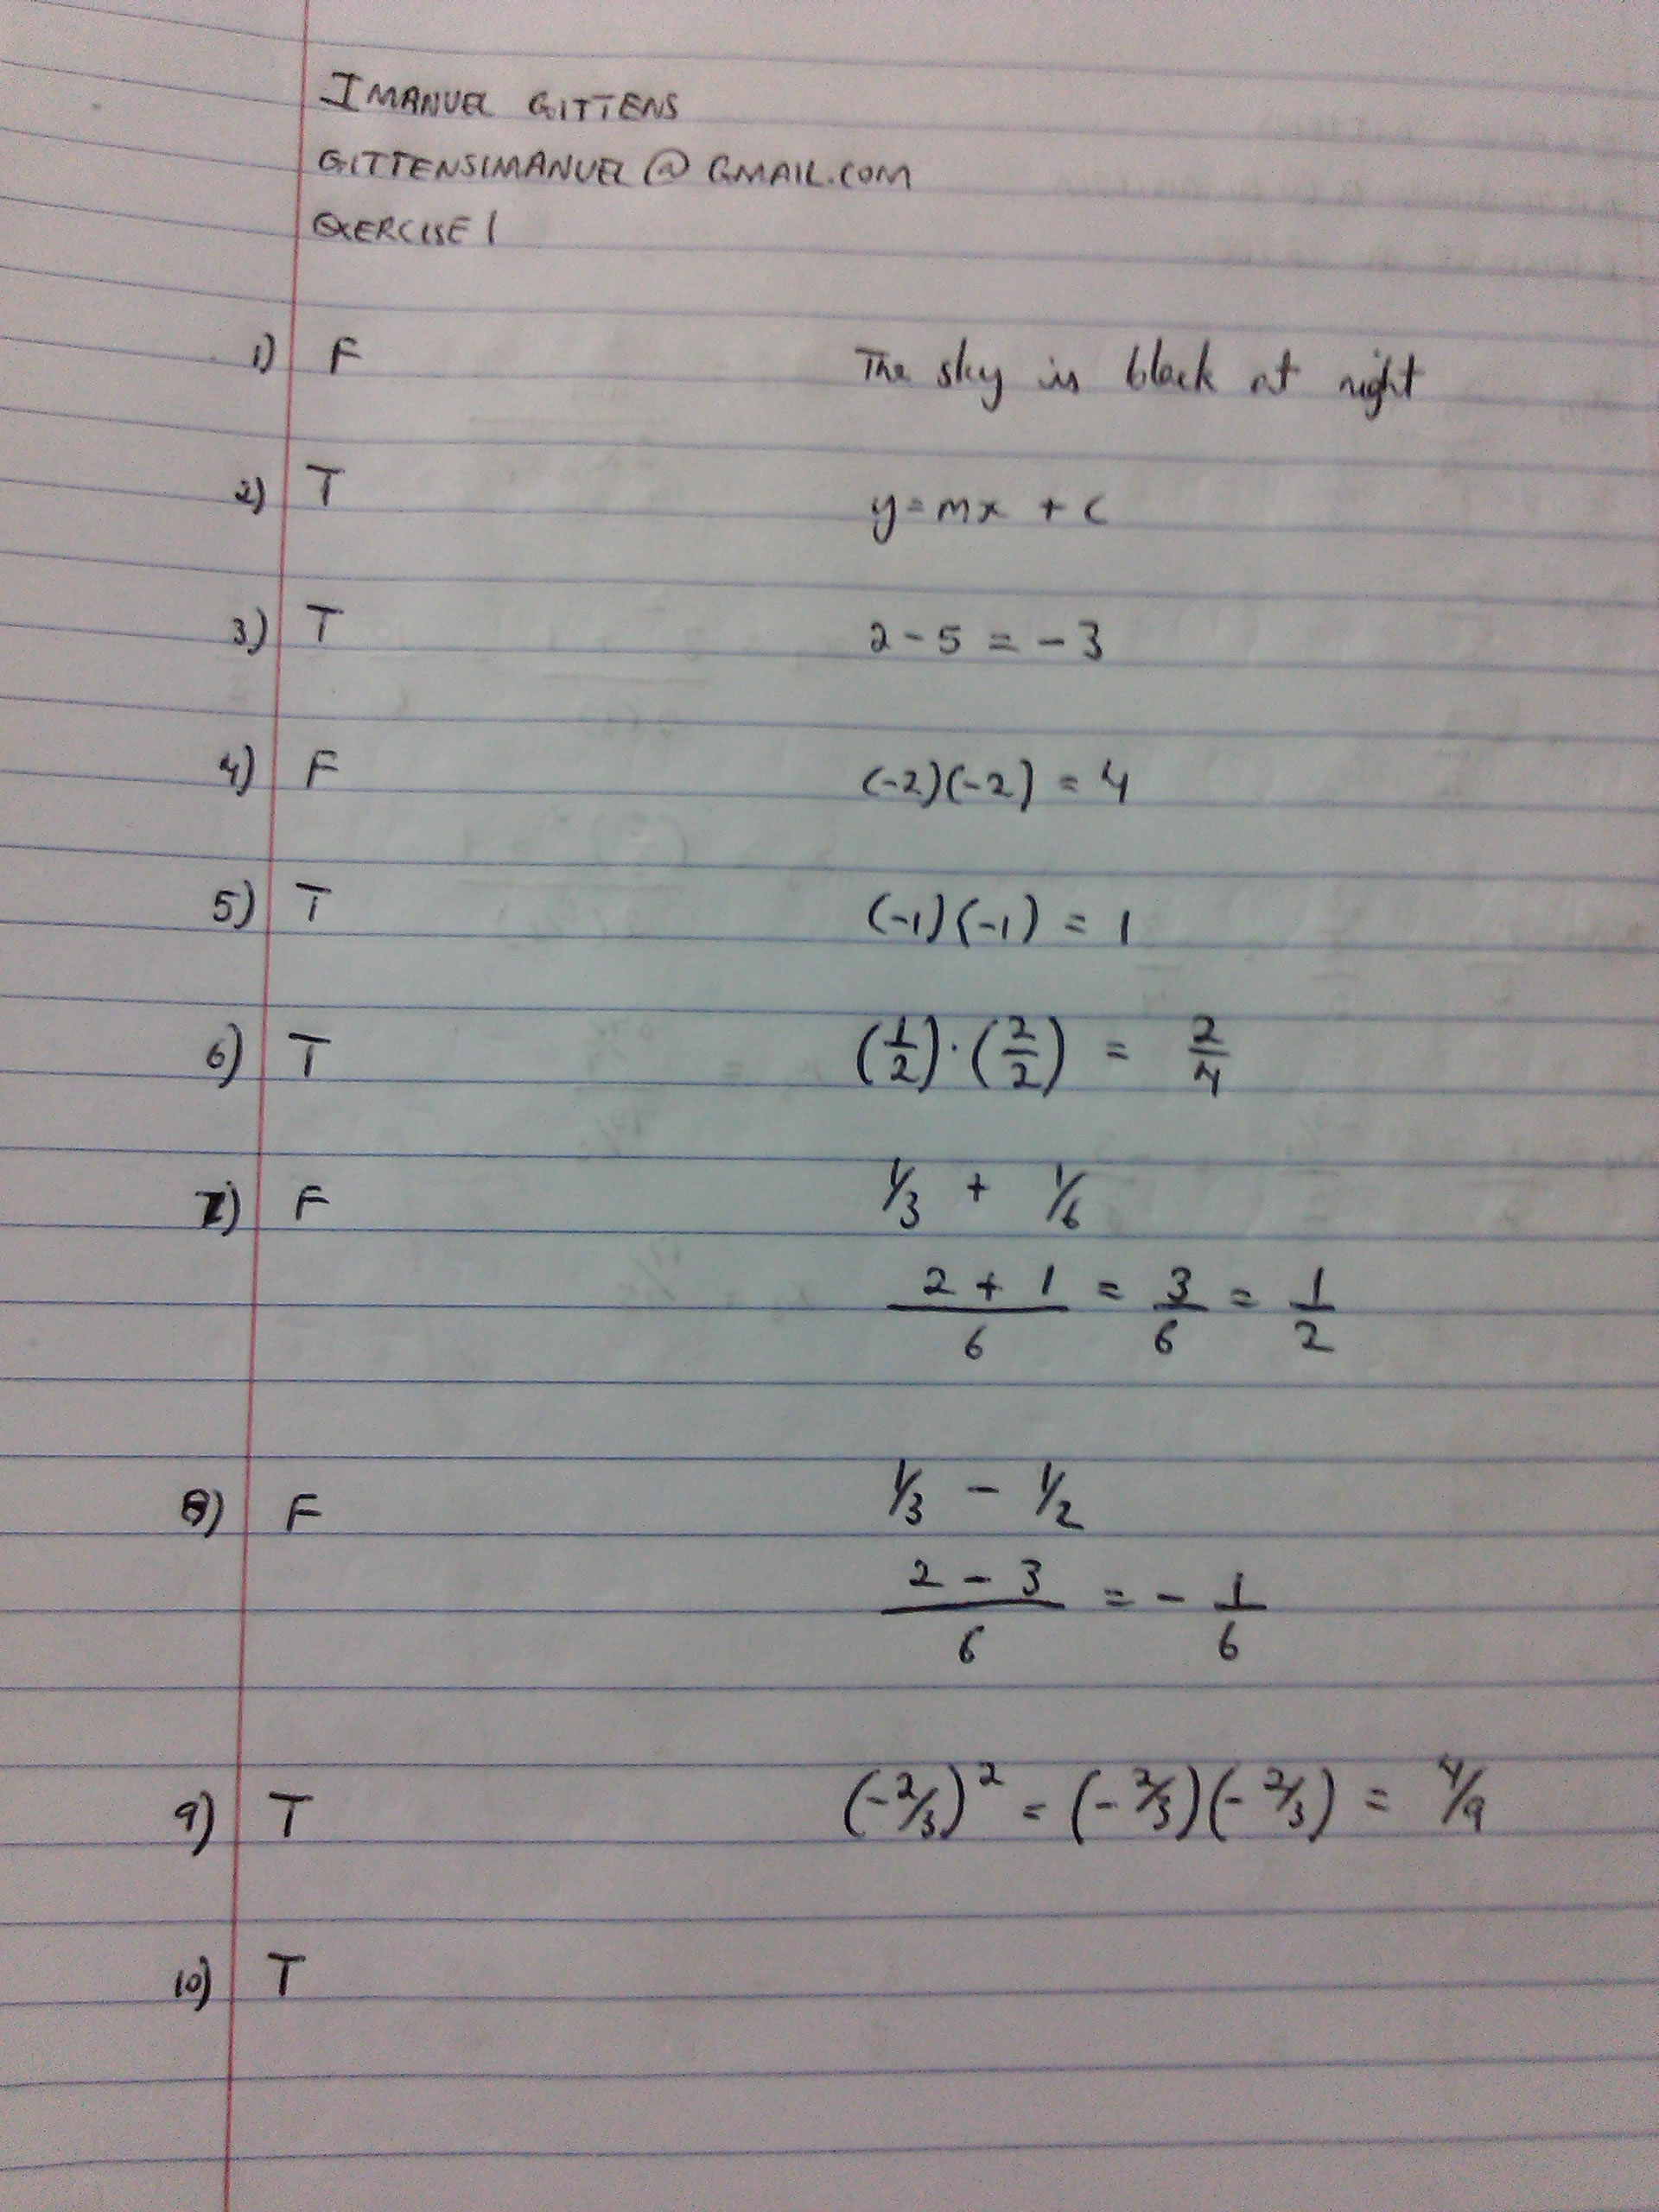 IMANUEL GITTENS
GITTENSIMANUEL@GMAIL.COM
EXERCISE 1
1) F The sky is black at night
2) T y=mx + c
3) T 2-5 = -3
4) F (-2)(-2) = 4
5) T (-1)(-1) = 1
6) T (1/2)·(2/2) = 2/4
7) F 1/3 + 1/6
2 + 1 / 6 = 3/6 = 1/2
8) F 1/3 - 1/2
2 - 3 / 6 = - 1/6
9) T (-2/3)² = (-2/3)(-2/3) = 4/9
10) T